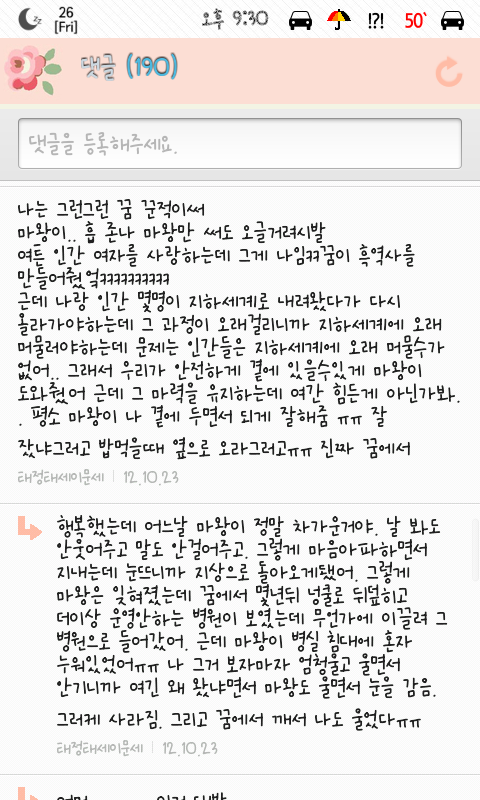 26
[Fri]
오후 9:30
!?!
50`
댓글 (190)
댓글을 등록해주세요.
나는 그런그런 꿈 꾼적이써
마왕이.. 흡 존나 마왕만 써도 오글거려시발
여튼 인간 여자를 사랑하는데 그게 나임ㅋㅋ꿈이 흑역사를
만들어줬엌ㅋㅋㅋㅋㅋㅋㅋㅋㅋㅋ
근데 나랑 인간 몇명이 지하세계로 내려왔다가 다시
올라가야하는데 그 과정이 오래걸리니까 지하세계에 오래
머물러야하는데 문제는 인간들은 지하세계에 오래 머물수가
없어.. 그래서 우리가 안전하게 곁에 있을수있게 마왕이
도와줬어 근데 그 마력을 유지하는데 여간 힘든게 아닌가봐.
. 평소 마왕이 나 곁에 두면서 되게 잘해줌 ㅠㅠ 잘
잤냐그러고 밥먹을때 옆으로 오라그러고ㅠㅠ 진짜 꿈에서
태정태세이문세 | 12.10.23
행복했는데 어느날 마왕이 정말 차가운거야. 날 봐도
안웃어주고 말도 안걸어주고. 그렇게 마음아파하면서
지내는데 눈뜨니까 지상으로 돌아오게됐어. 그렇게
마왕은 잊혀졌는데 꿈에서 몇년뒤 넝쿨로 뒤덮히고
더이상 운영안하는 병원이 보였는데 무언가에 이끌려 그
병원으로 들어갔어. 근데 마왕이 병실 침대에 혼자
누워있었어ㅠㅠ 나 그거 보자마자 엄청울고 울면서
안기니까 여긴 왜 왔냐면서 마왕도 울면서 눈을 감음.
그러케 사라짐. 그리고 꿈에서 깨서 나도 울었다ㅠㅠ
태정태세이문세 | 12.10.23